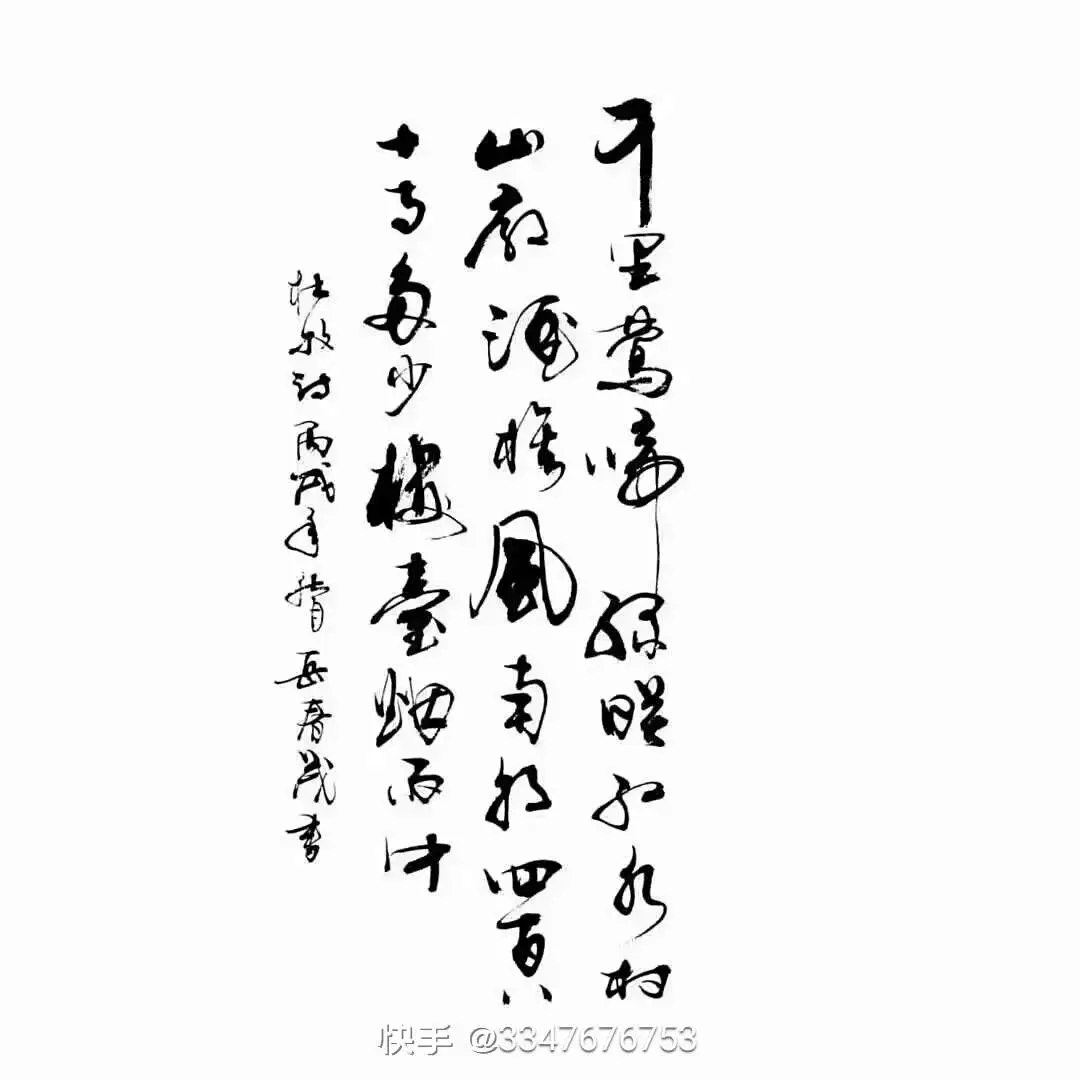 千里莺啼绿映红水村
山郭酒旗风南朝四百八
十寺多少楼臺烟雨中
杜牧诗丙戌年 岳春茂书
快手 @3347676753